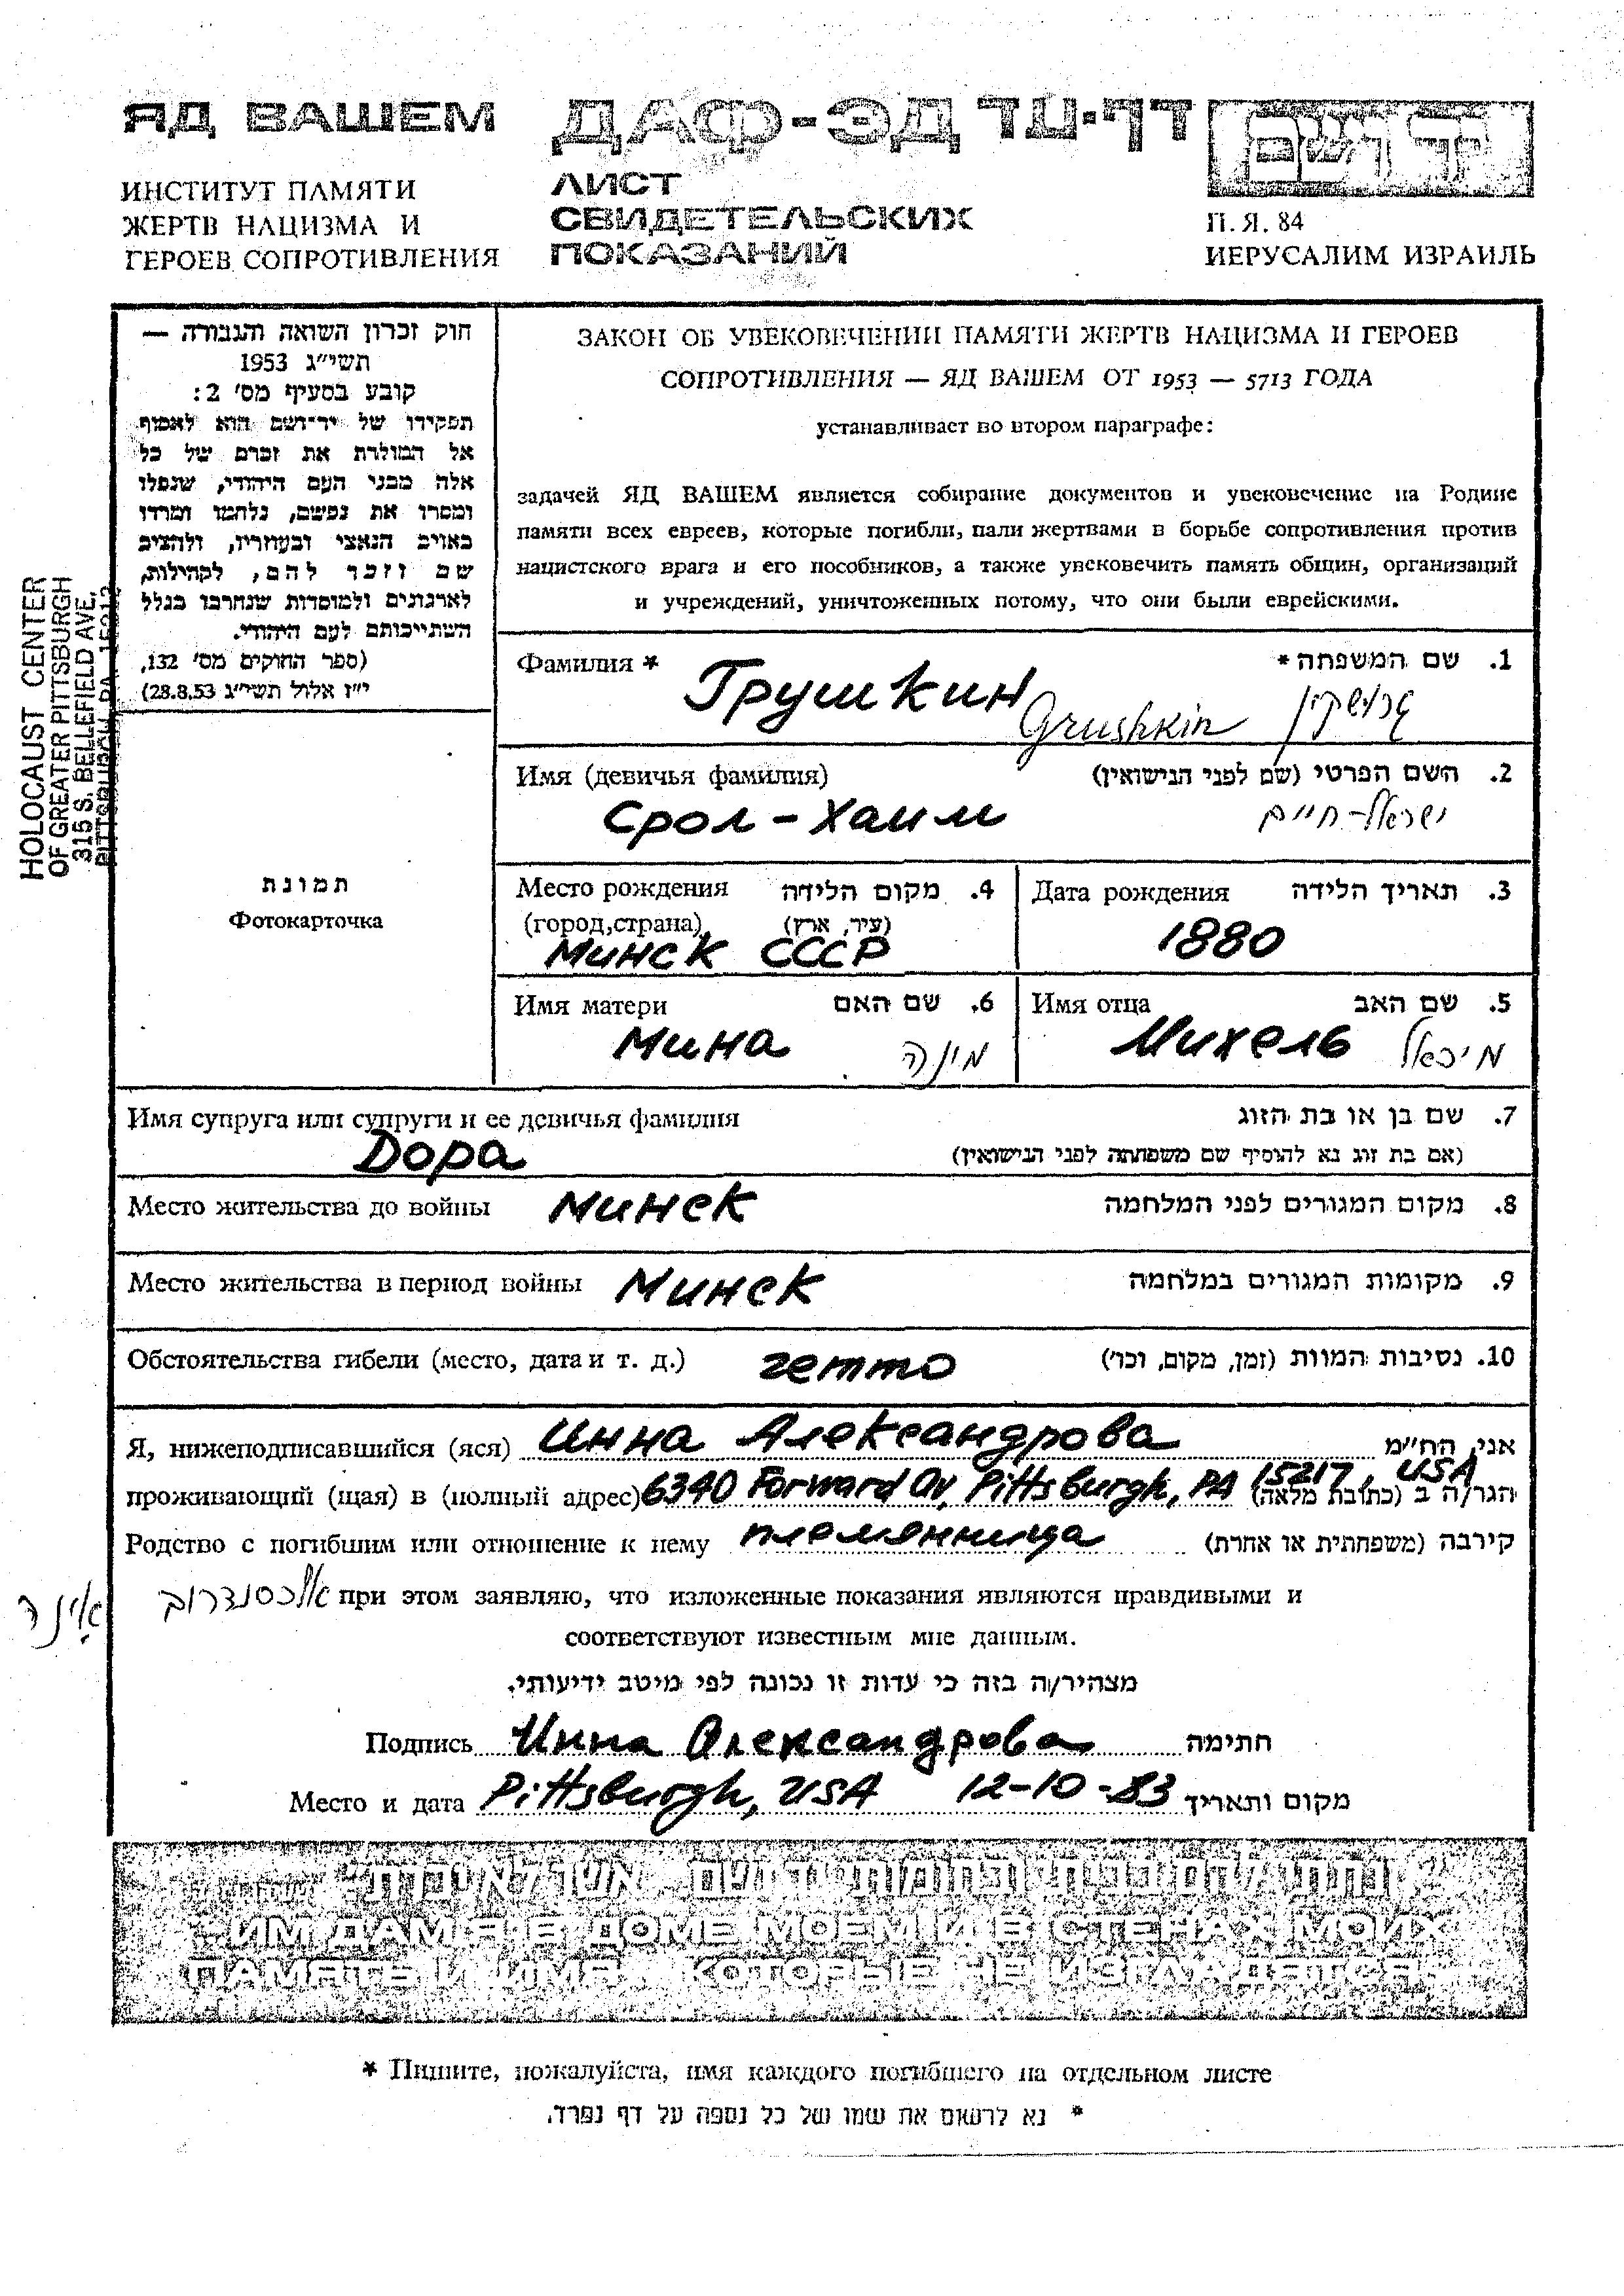 ЯД ВАШЕМ
ИНСТИТУТ ПАМЯТИ
ЖЕРТВ НАЦИЗМА И
ГЕРОЕВ СОПРОТИВЛЕНИЯ
ДАФ-ЭД דף-עד
ЛИСТ
СВИДЕТЕЛЬСКИХ
ПОКАЗАНИЙ
יד ושם
П. Я. 84
ИЕРУСАЛИМ ИЗРАИЛЬ
HOLOCAUST CENTER
OF GREATER PITTSBURGH
315 S. BELLEFIELD AVE.
PITTSBURGH, PA 15213
חוק זכרון השואה והגבורה —
תשי״ג 1953
קובע בסעיף מס׳ 2:
תפקידו של יד־ושם הוא לאסוף
אל המולדת את זכרם של כל
אלה מבני העם היהודי, שנפלו
ומסרו את נפשם, נלחמו ומרדו
באויב הנאצי ובעוזריו, ולהציב
שם וזכר להם, לקהילות,
לארגונים ולמוסדות שנחרבו בגלל
השתייכותם לעם היהודי.
(ספר החוקים מס׳ 132,
י״ז אלול תשי״ג 28.8.53)
תמונת
Фотокарточка
ЗАКОН ОБ УВЕКОВЕЧЕНИИ ПАМЯТИ ЖЕРТВ НАЦИЗМА И ГЕРОЕВ
СОПРОТИВЛЕНИЯ — ЯД ВАШЕМ ОТ 1953 — 5713 ГОДА
устанавливает во втором параграфе:
задачей ЯД ВАШЕМ является собирание документов и увековечение на Родине
памяти всех евреев, которые погибли, пали жертвами в борьбе сопротивления против
нацистского врага и его пособников, а также увековечить память общин, организаций
и учреждений, уничтоженных потому, что они были еврейскими.
Фамилия * 1. שם המשפחה *
Грушкин Grushkin גרושקין
Имя (девичья фамилия) 2. השם הפרטי (שם לפני הנישואין)
Срол-Хаим ישראל-חיים
Место рождения 4. מקום הלידה
(город,страна) (עיר, ארץ)
Минск СССР
Дата рождения 3. תאריך הלידה
1880
Имя матери 6. שם האם
Мина מינה
Имя отца 5. שם האב
Михель מיכאל
Имя супруга или супруги и ее девичья фамилия 7. שם בן או בת הזוג
Дора (אם בת זוג נא להוסיף שם משפחתה לפני הנישואין)
Место жительства до войны Минск 8. מקום המגורים לפני המלחמה
Место жительства в период войны Минск 9. מקומות המגורים במלחמה
Обстоятельства гибели (место, дата и т. д.) гетто 10. נסיבות המוות (זמן, מקום, וכו׳)
Я, нижеподписавшийся (яся) Инна Александрова אני, הח״מ
проживающий (щая) в (полный адрес) 6340 Forward Av, Pittsburgh, PA 15217, USA הגר/ה ב (כתובת מלאה)
Родство с погибшим или отношение к нему племянница קירבה (משפחתית או אחרת)
אינה אלכסנדרוב при этом заявляю, что изложенные показания являются правдивыми и
соответствуют известным мне данным.
מצהיר/ה בזה כי עדות זו נכונה לפי מיטב ידיעותי.
Подпись Инна Александрова חתימה
Место и дата Pittsburgh, USA 12-10-83 מקום ותאריך
ונתתי להם בביתי ובחומותי יד ושם... אשר לא יכרת
ИМ ДАМ Я В ДОМЕ МОЕМ И В СТЕНАХ МОИХ
ПАМЯТЬ И ИМЯ, КОТОРЫЕ НЕ ИЗГЛАДЯТСЯ
* Пишите, пожалуйста, имя каждого погибшего на отдельном листе
* נא לרשום את שמו של כל נספה על דף נפרד.